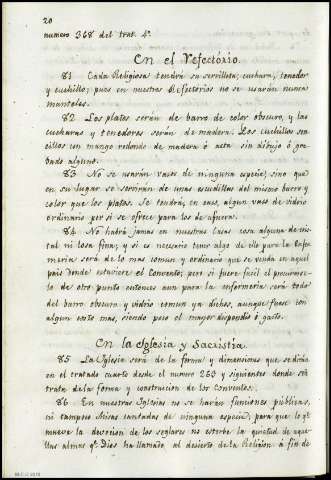 20
numero 368 del trat. 4º
En el Refectorio.
81 Cada Religiosa tendrá su servilleta; cuchara, tenedor
y cuchillo; pues en nuestros Refectorios no se usarán nunca
manteles.
82 Los platos serán de barro de color obscuro, y las
cucharas y tenedores serán de madera. Los cuchillos sen
cillos con mango redondo de madera ó asta sin dibujo ó gra
bado alguno.
83 No se usarán vasos de ninguna especie; sino que
en su lugar se servirán de unas escudillas del mismo barro y
color que los platos. Se tendrá, en casa, algun vaso de vidrio
ordinario por si se ofrece para los de afuera.
84 No habrá jamas en nuestras Casas cosa alguna de cris
tal ni losa fina; y si es necesario tener algo de ello para la Enfer
meria será de lo mas comun y ordinario que se venda en aquel
pais donde estuviere el Convento; pero si fuere facil el procurarse
lo de otro punto entonces aun para la enfermeria será todo
del barro obscuro y vidrio comun ya dichos, aunque fuese con
algun costo mas, siendo poco el mayor dispendio ó gasto.
En la Iglesia y Sacristia.
85 La Iglesia será de la forma y dimensiones que se dirán
en el tratado cuarto desde el numero 263 y siguientes donde se
trata de la forma y construcion de los Conventos.
86 En nuestras Iglesias no se harán funciones publicas,
ni tampoco Misas cantadas de ninguna especie, para que lo qº
mueve la devocion de los seglares no estorbe la quietud de aque
llas almas qº Dios ha llamado al desierto de la Religion á fin de